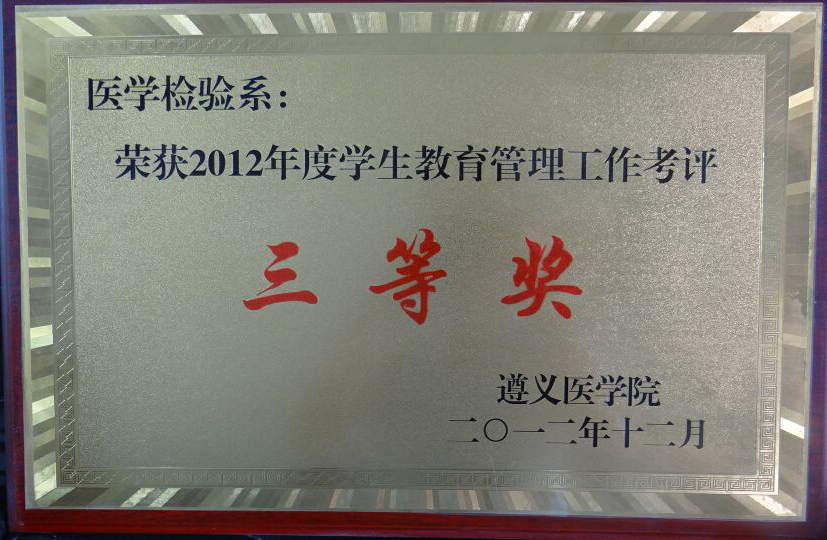 医学检验系：
荣获2012年度学生教育管理工作考评
三等奖
遵义医学院
二〇一二年十二月